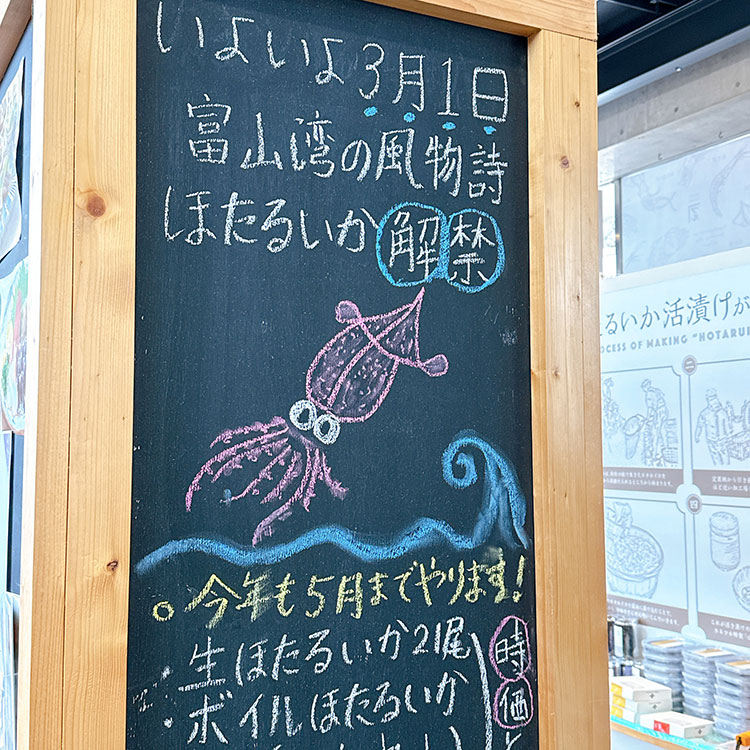 いよいよ3月1日
富山湾の風物詩
ほたるいか解禁
。今年も5月までやります!
・生ほたるいか2尾
・ボイルほたるいか
時価
るいか活漬けが
OCESS OF MAKING "HOTARU
二
四